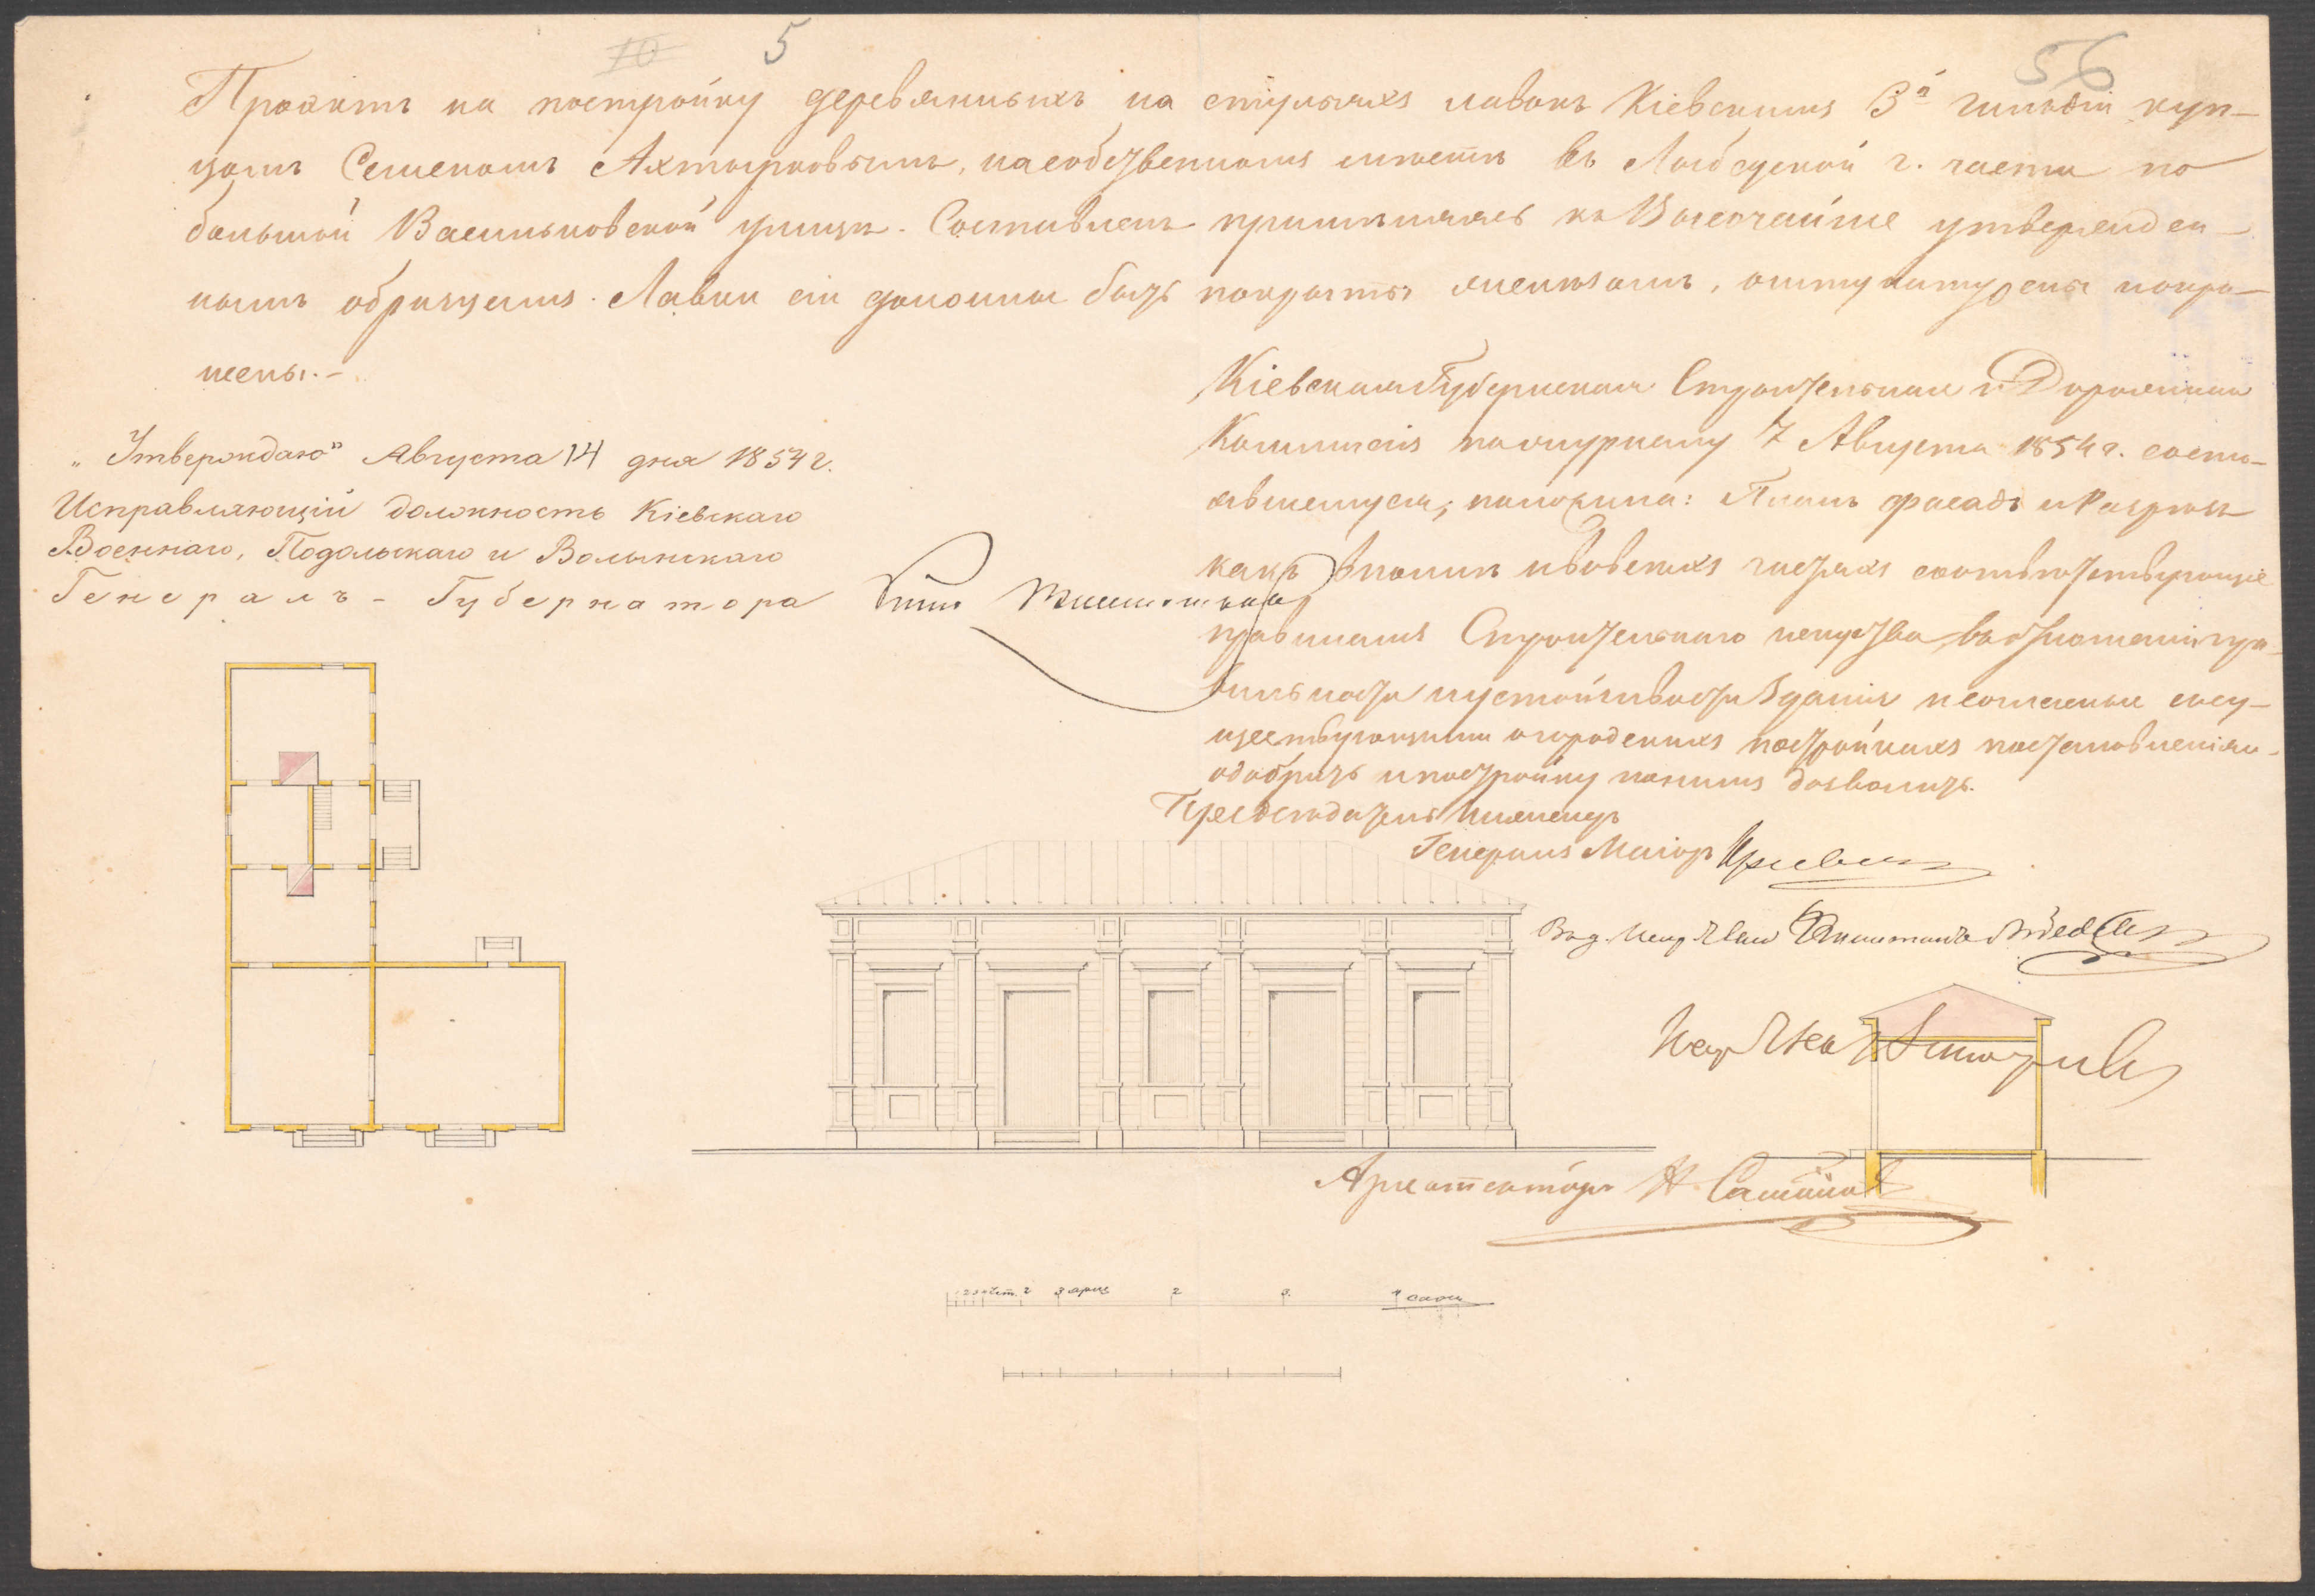 10 5 56
Проэктъ на постройку деревянныхъ на стульяхъ лавокъ Кіевскимъ 3й гильдіи куп-
цомъ Семеномъ Ахтырковымъ, на собственномъ мѣстѣ въ Лыбедской г. части по
большой Васильковской улицѣ. Составленъ примѣняясь къ Высочайше утвержден-
нымъ образцамъ. Лавки сіи должны быть покрыты желѣзомъ, оштукатурены и окра-
шены.-
„Утверждаю" Августа 14 дня 1854 г.
Исправляющій должность Кіевскаго
Военнаго, Подольскаго и Волынскаго
Генералъ-Губернатора
Кіевская Губернская Строительная и Дорожная
Коммисія по журналу 7 Августа 1854 г. состо-
явшемуся, положила: Планъ фасадъ и Разрѣзъ
какъ вполнѣ и во всѣхъ частяхъ соотвѣтствующіе
правиламъ Строительнаго искуства въ отношеніи пра-
вильности и устойчивости зданія и согласные съ су-
ществующими о городскихъ постройкахъ постановленіями
одобрить и постройку по нимъ дозволить.
Предсѣдатель Инженеръ
Генералъ Маіоръ
Архитекторъ
3 арш 2 3 4 саж